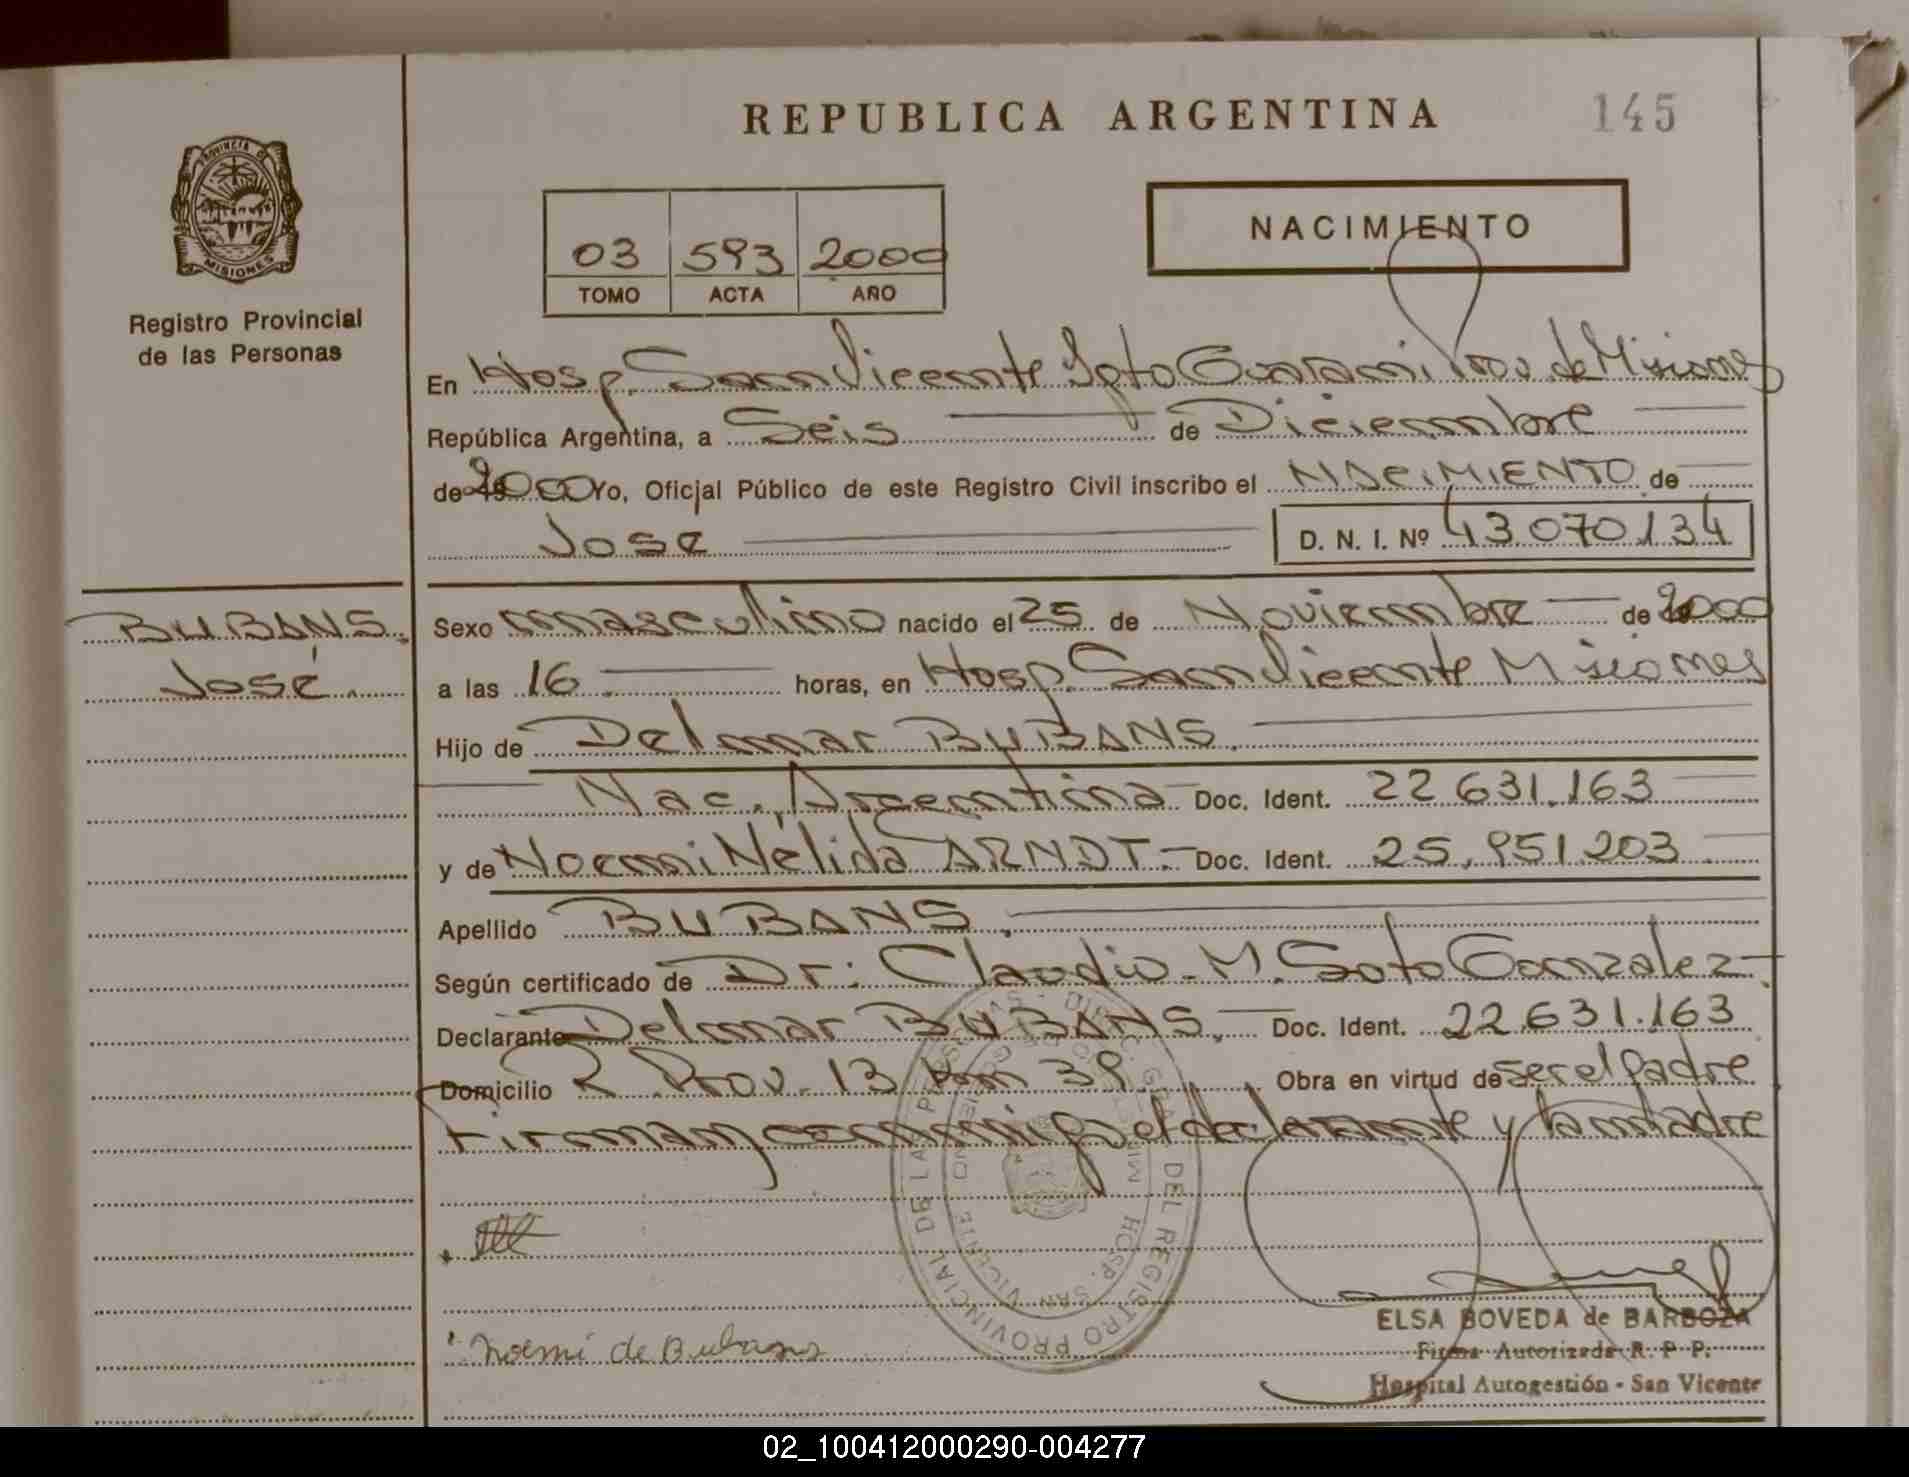 REPUBLICA ARGENTINA
145
PROVINCIA DE
MISIONES
Registro Provincial
de las Personas
03 593 2000
TOMO ACTA AÑO
NACIMIENTO
En Hosp. San Vicente Dpto Guarani Prov. de Misiones
República Argentina, a Seis de Diciembre
de 2000 Yo, Oficial Público de este Registro Civil inscribo el NACIMIENTO de
Jose D. N. I. Nº 43 070.134
BUBANS.
José.
Sexo masculino nacido el 25 de Noviembre de 2000
a las 16 horas, en Hosp. San Vicente Misiones
Hijo de Delmar BUBANS.
Nac. Argentina Doc. Ident. 22 631.163
y de Noemi Nélida ARNDT.- Doc. Ident. 25.951.203
Apellido BUBANS.
Según certificado de Dr: Claudio M. Soto Gonzalez
Declarante Delmar BUBANS. Doc. Ident. 22.631.163
Domicilio R Prov. 13 km 39 Obra en virtud de ser el padre
Firman conmigo el declarante y la madre
DIREC. GRAL. DEL REGISTRO PROVINCIAL DE LAS PERSONAS
HOSP. SAN VICENTE
Noemi de Bubans
ELSA BOVEDA de BARBOZA
Firma Autorizada R. P. P.
Hospital Autogestión - San Vicente
02_100412000290-004277